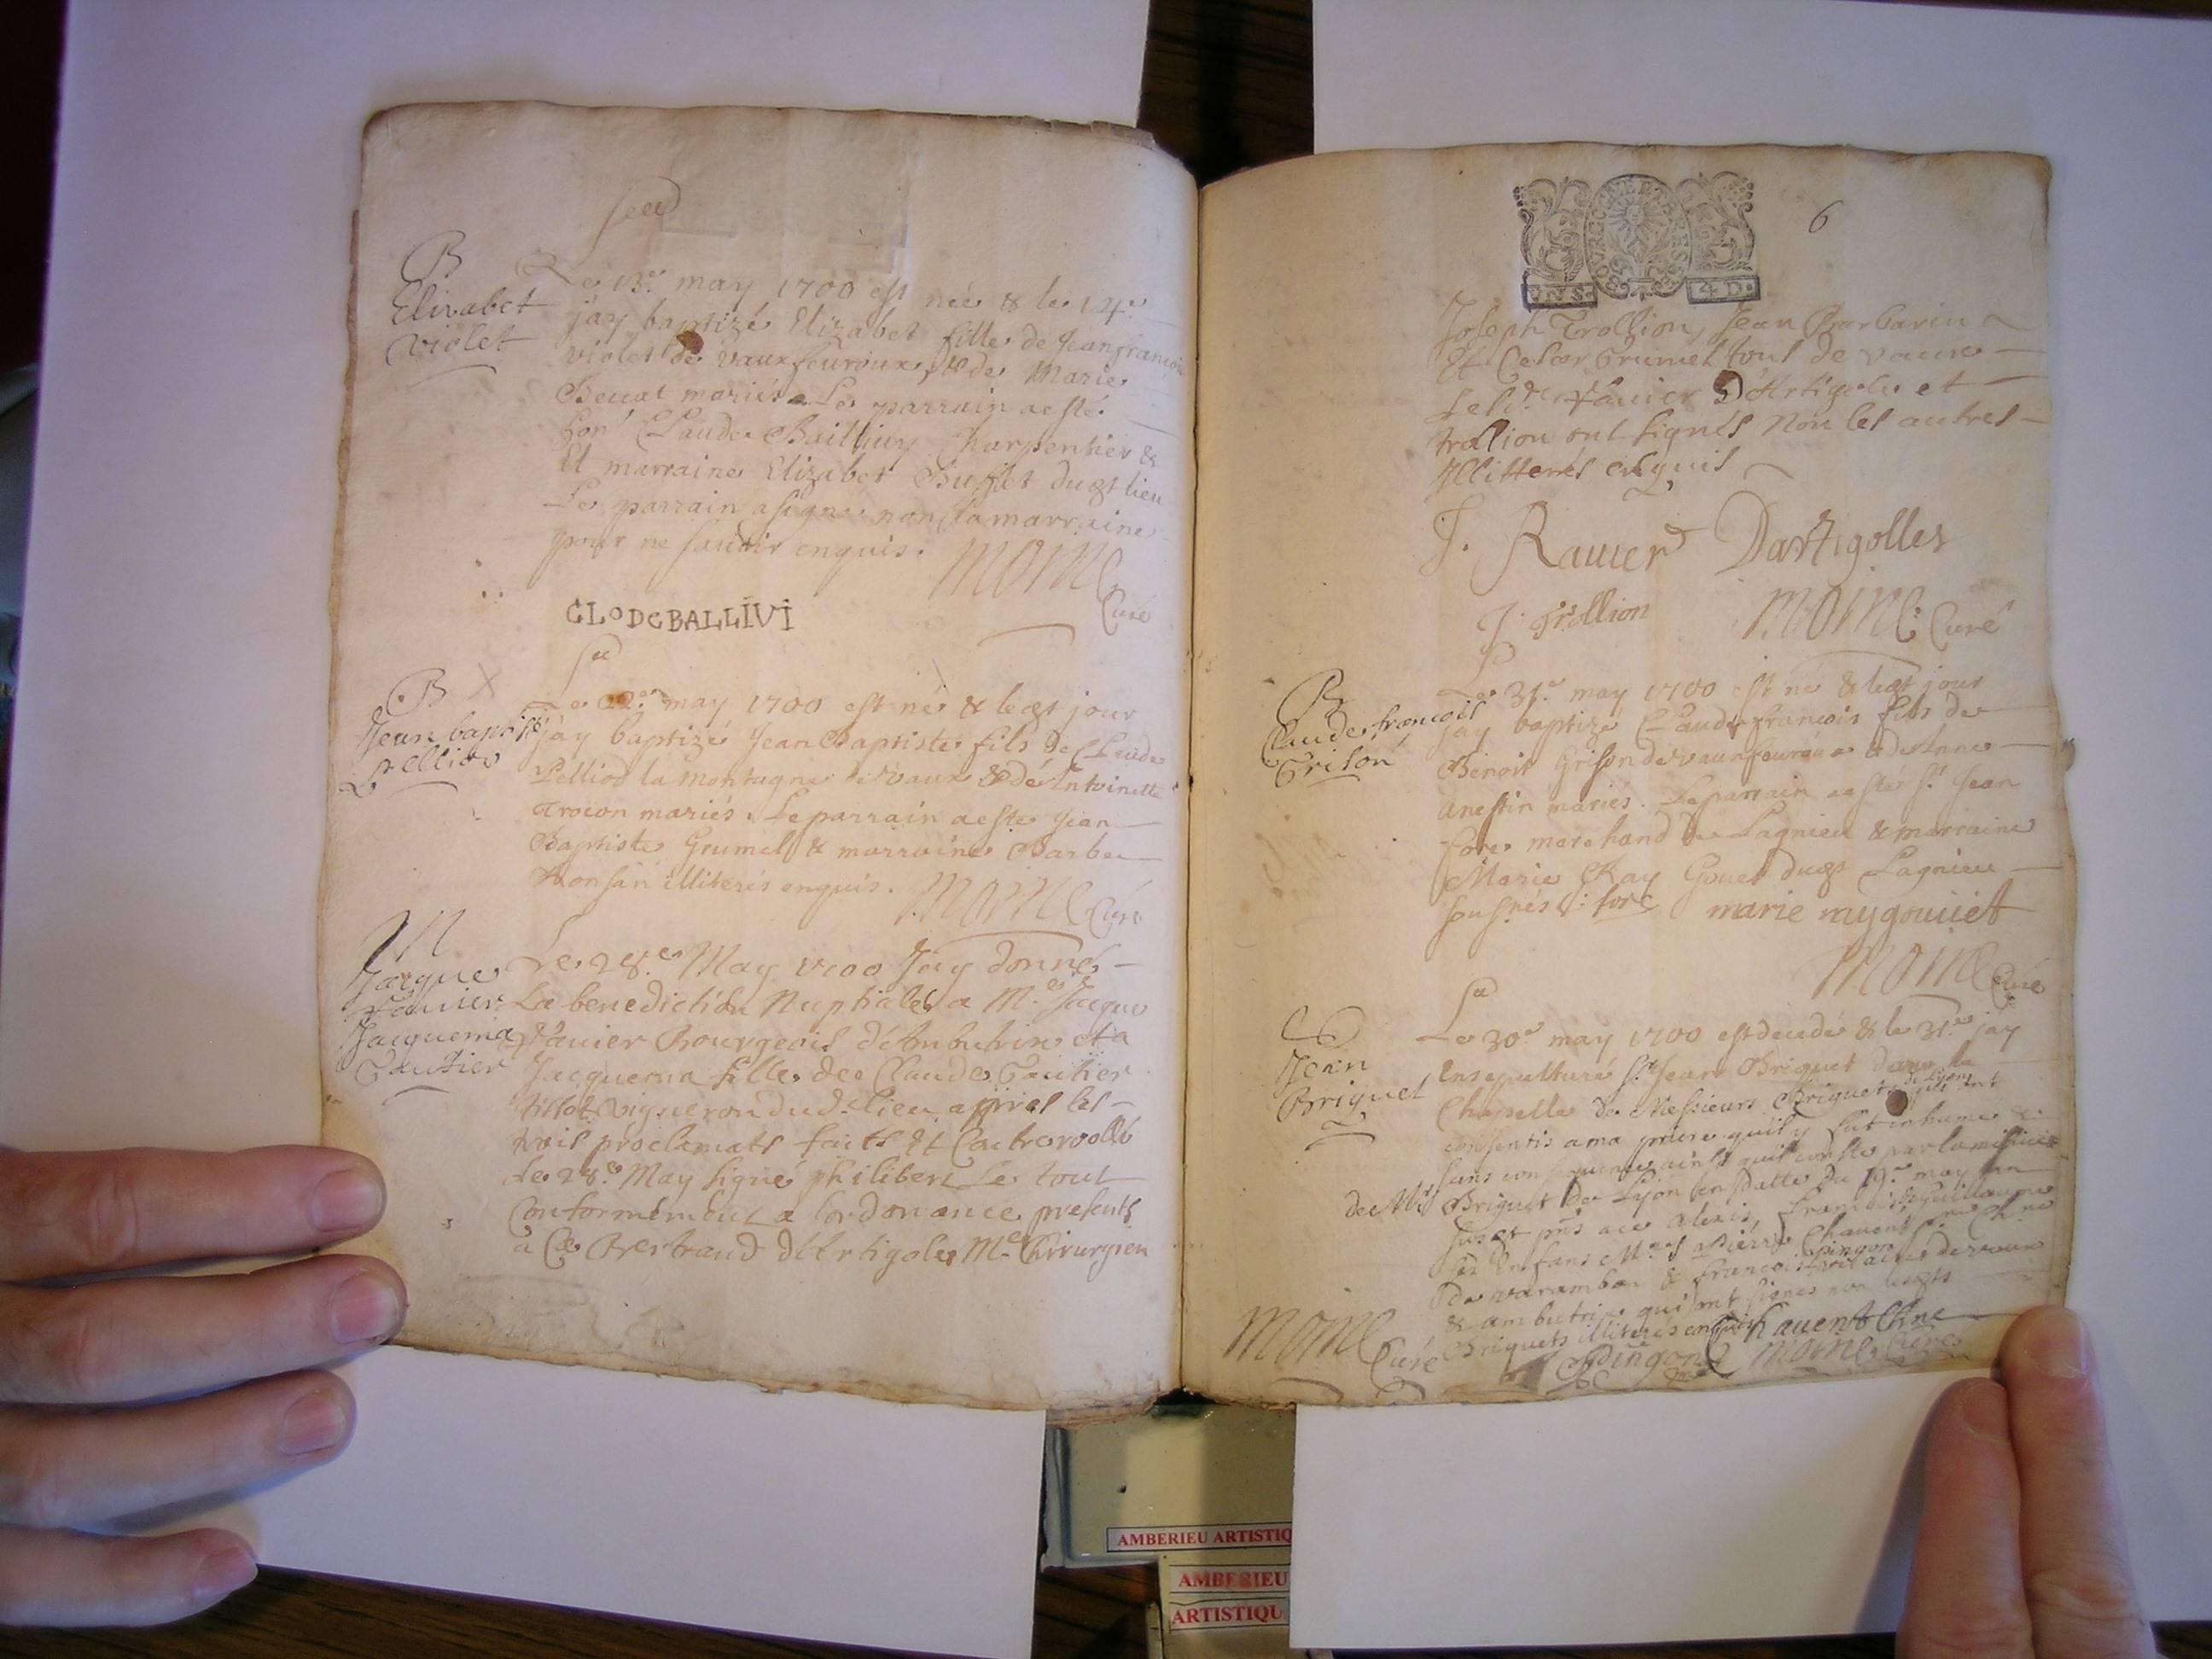 B
Elizabet
violet
Le 13e may 1700 est née & le 14e
jáy baptizé Elizabet fille de Jean francois
violet de vaux feuroux, & de Marie
mariés Le parrain a esté
hon. Claude Baillivy Charpentier &
Et marraine Elizabet Buffet dudt lieu
Le parrain a signe non la marraine
pour ne savoir enquis.
Moine
Curé
CLODEBALLIVI
B
Jean baptiste
Pelliod
Le 22e may 1700 est né & ledt jour
jáy baptizé Jean Baptiste fils de Claude
Pelliod la Montagne de vaux & dé Antoinette
Trocon mariés. Le parrain a esté Jean
Baptiste Grumel & marraine Barbe
illiterés enquis.
Moine Curé
M
Jacque
Jacquema
Gautier
Le 28.e May 1700 Jay donné
La benediction Nuptiale a M.e Jacque
Bourgeois d'Ambutrin et a
Jacquema fille de Claude Gautier
vigneron dud. Lieu apprés les
trois proclamats faits Et
Le 28.e May signé philibert Le tout
Conformément a lordonance presents
a Ce Bertrand d'Artigoles M.e Chirurgien
6
BOURGOGNE ET BRESSE
4 D.
Joseph Trollion, Jean Barbarin
Et Cesar Grumel tous de vaux
Led. D'Artigoles et
trollion ont signés Non les autres
Illitterés enquis
J. Rauier Dartigolles
J. Trollion Moine Curé
B
Claude francois
Grison
Le 31.e may 1700 est né & ledt jour
jay baptizé Claude francois fils de
Benoit Grison de vaux feuroux & de Anne
Anestin mariés. Le parrain a esté Sr Jean
fore marchand de Lagnieu & marraine
Marie Ray Gouet dudt Lagnieu
sousnés J. fore marie raygouuet
Moine Curé
Jean
Briquet
Le 30e may 1700 est decedé & le 31.e jáy
Ensepulturé Sr Jean Briquet dans la
Chapelle de Messieurs Briquet de Lyon
consentis a ma priere quil y fut inhumé
sans consequence ainsi quil conste par la missive
de Mrs Briquet de Lyon en datte du 19.e may an
susdt pns a ce Alexis, francois, & Guillaume
ses Enfans Pierre Chauent
de varambon & francois pingon de vaux
& ambutrin qui ont signes non
Briquets illiterés enquis Chauent
Moine Curé pingon Moine Curé
AMBERIEU ARTISTIQ
AMBERIEU
ARTISTIQU